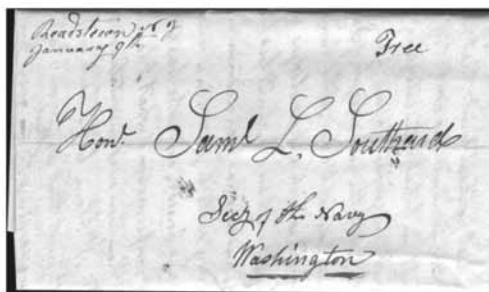 Roadstown NJ
January 9th
Free
Honl. Saml L. Southard
Secy of the Navy
Washington